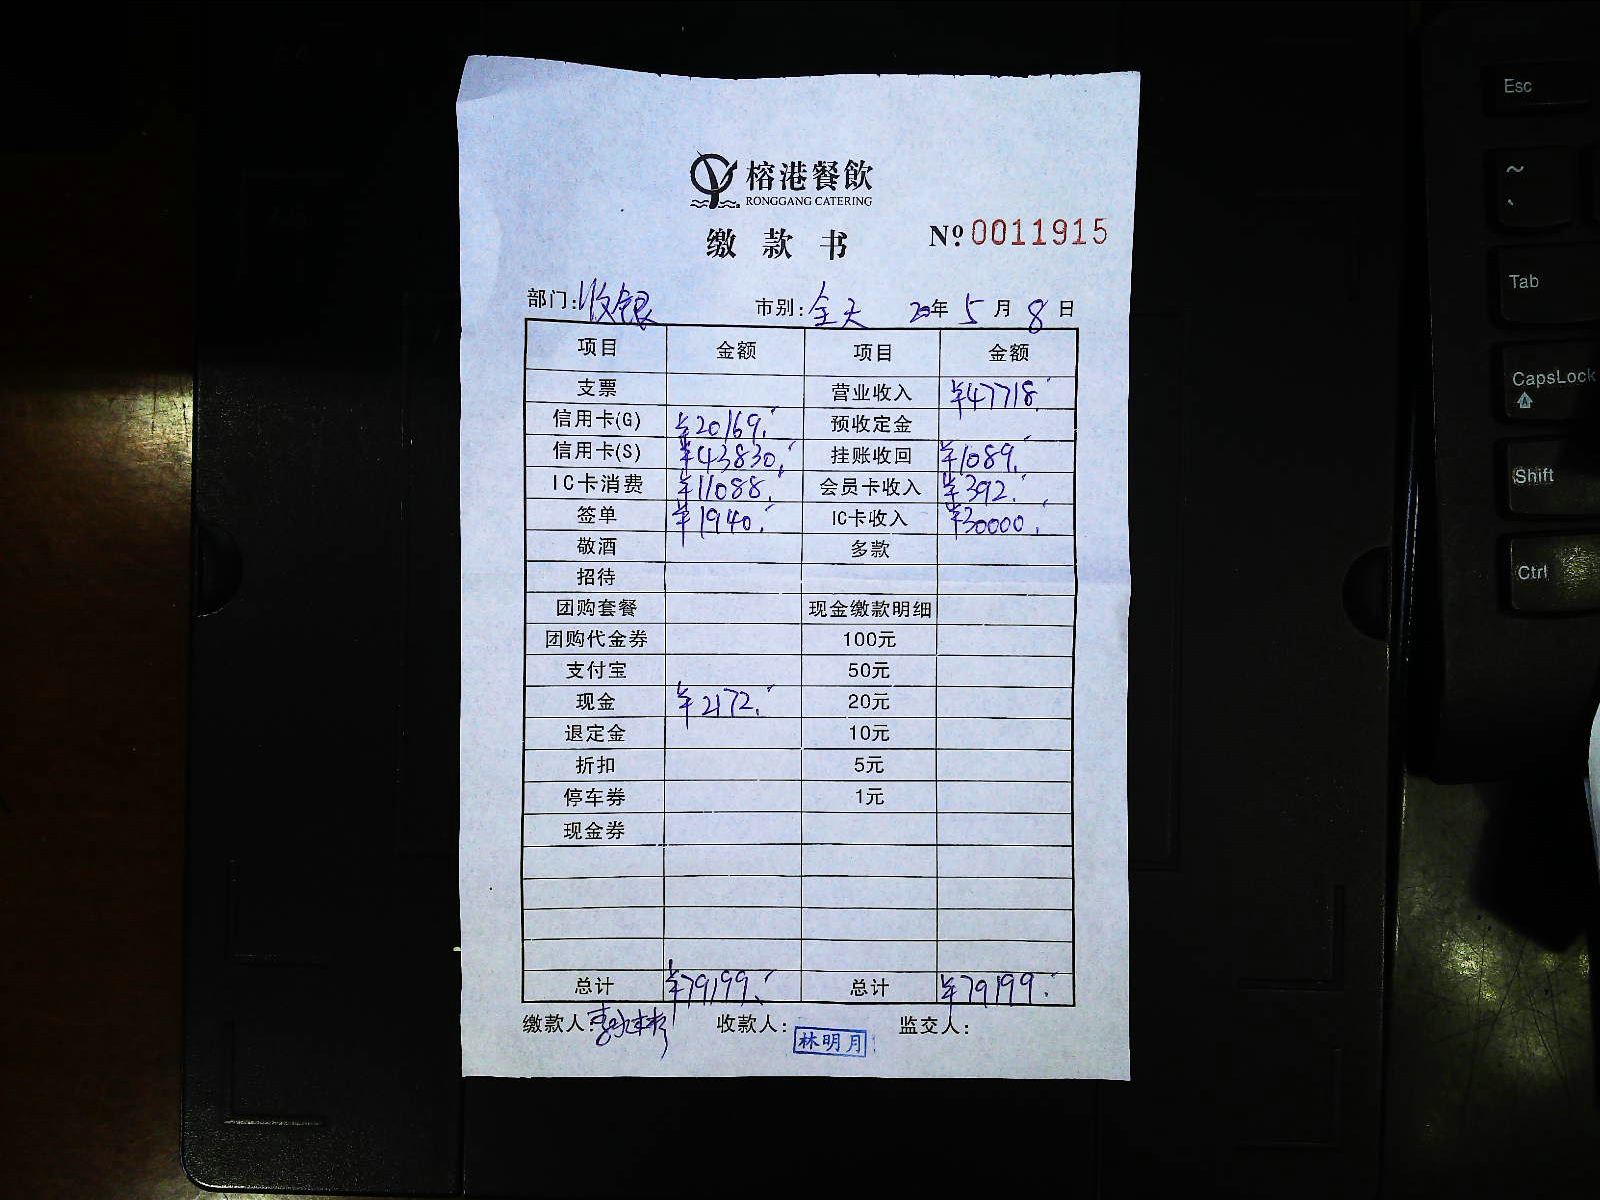 榕港餐飲
RONGGANG CATERING
缴款书 Nº 0011915
部门: 收银 市别: 全天 20年 5月 8日
项目 金额 项目 金额
支票 营业收入 ¥47718.
信用卡(G) ¥20169. 预收定金
信用卡(S) ¥43830. 挂账收回 ¥1089.
IC卡消费 ¥11088. 会员卡收入 ¥392.
签单 ¥1940. IC卡收入 ¥30000.
敬酒 多款
招待
团购套餐 现金缴款明细
团购代金券 100元
支付宝 50元
现金 ¥2172. 20元
退定金 10元
折扣 5元
停车券 1元
现金券
总计 ¥79199. 总计 ¥79199.
缴款人: 收款人: 林明月 监交人:
Esc
~
Tab
CapsLock
Shift
Ctrl